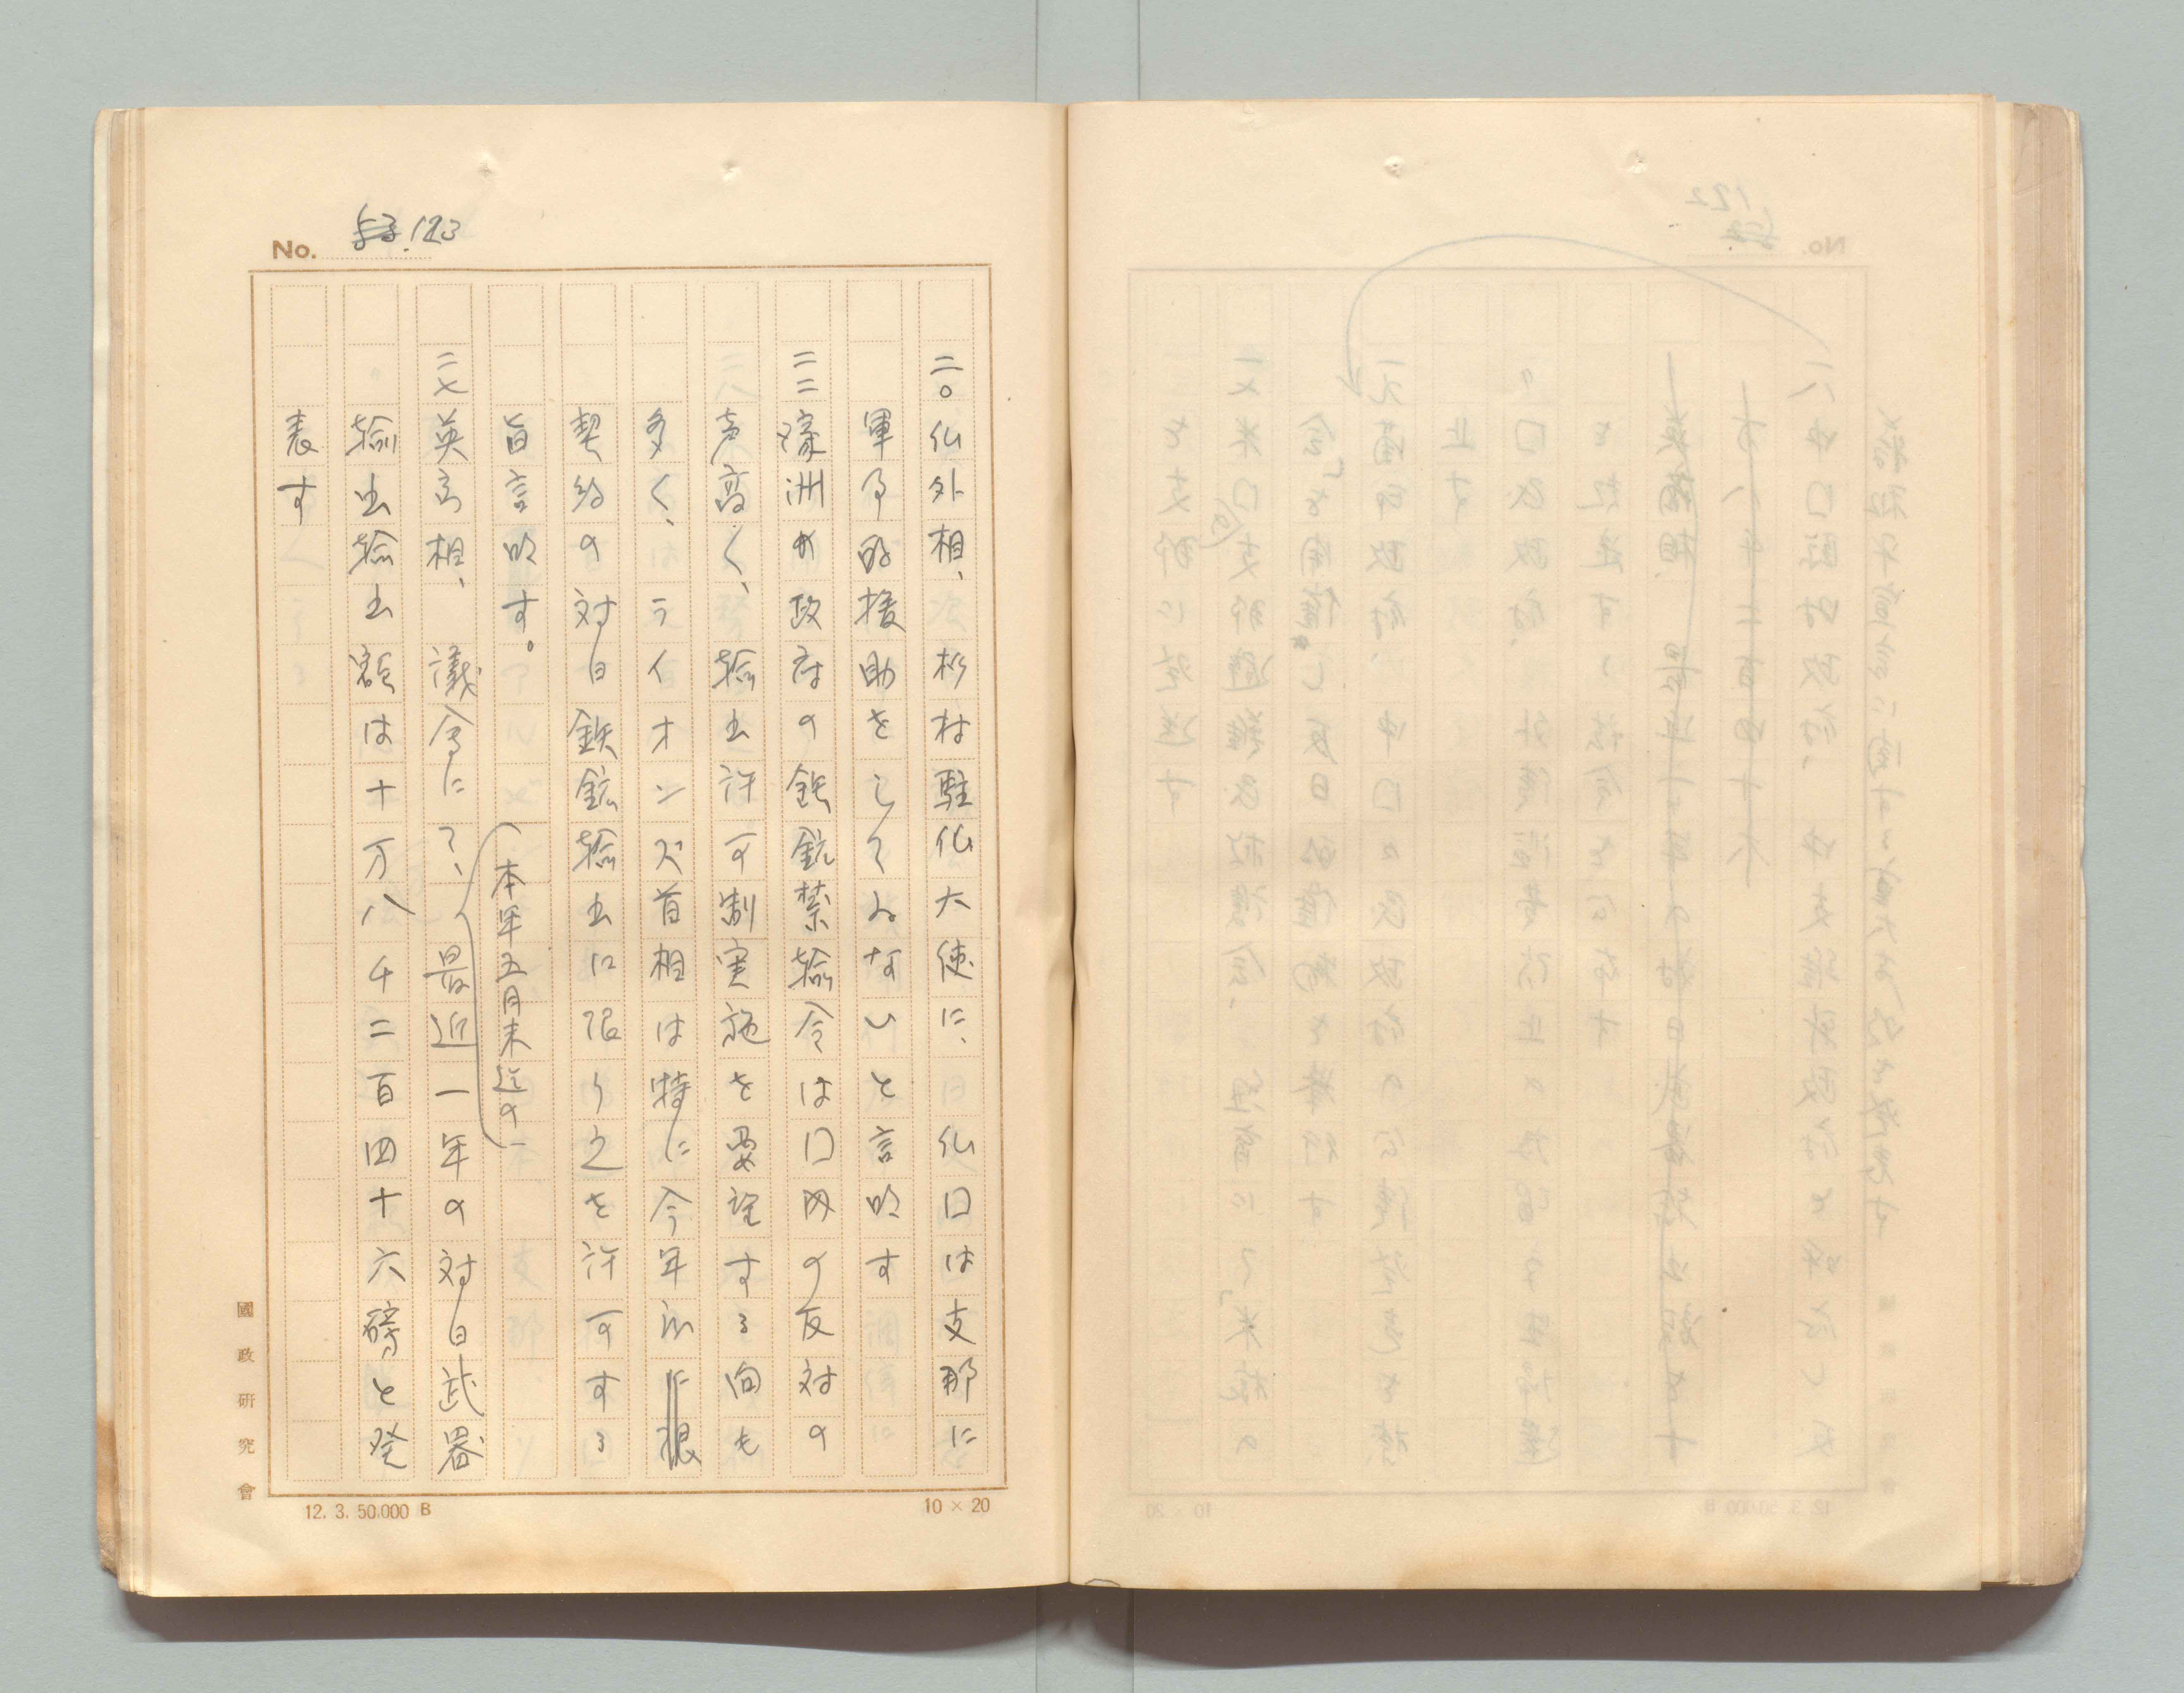 No. 123
二〇仏外相、杉村駐仏大使に、仏口は支那に
軍事的援助をしてゐないと言明す
二二濠洲政府の鉄鉱禁輸令は口内の反対の
声高く、輸出許可制実施を要望する向も
多く、ライオンズ首相は特に今年
契約の対日鉄鉱輸出に限り之を許可する
旨言明す。
(本年五月末迄の)
二七英商相、議会にて、最近一年の対日武器
輸出輸出額は十万八千二百四十六磅と発
表す
國政研究會
12. 3. 50,000 B
10 × 20